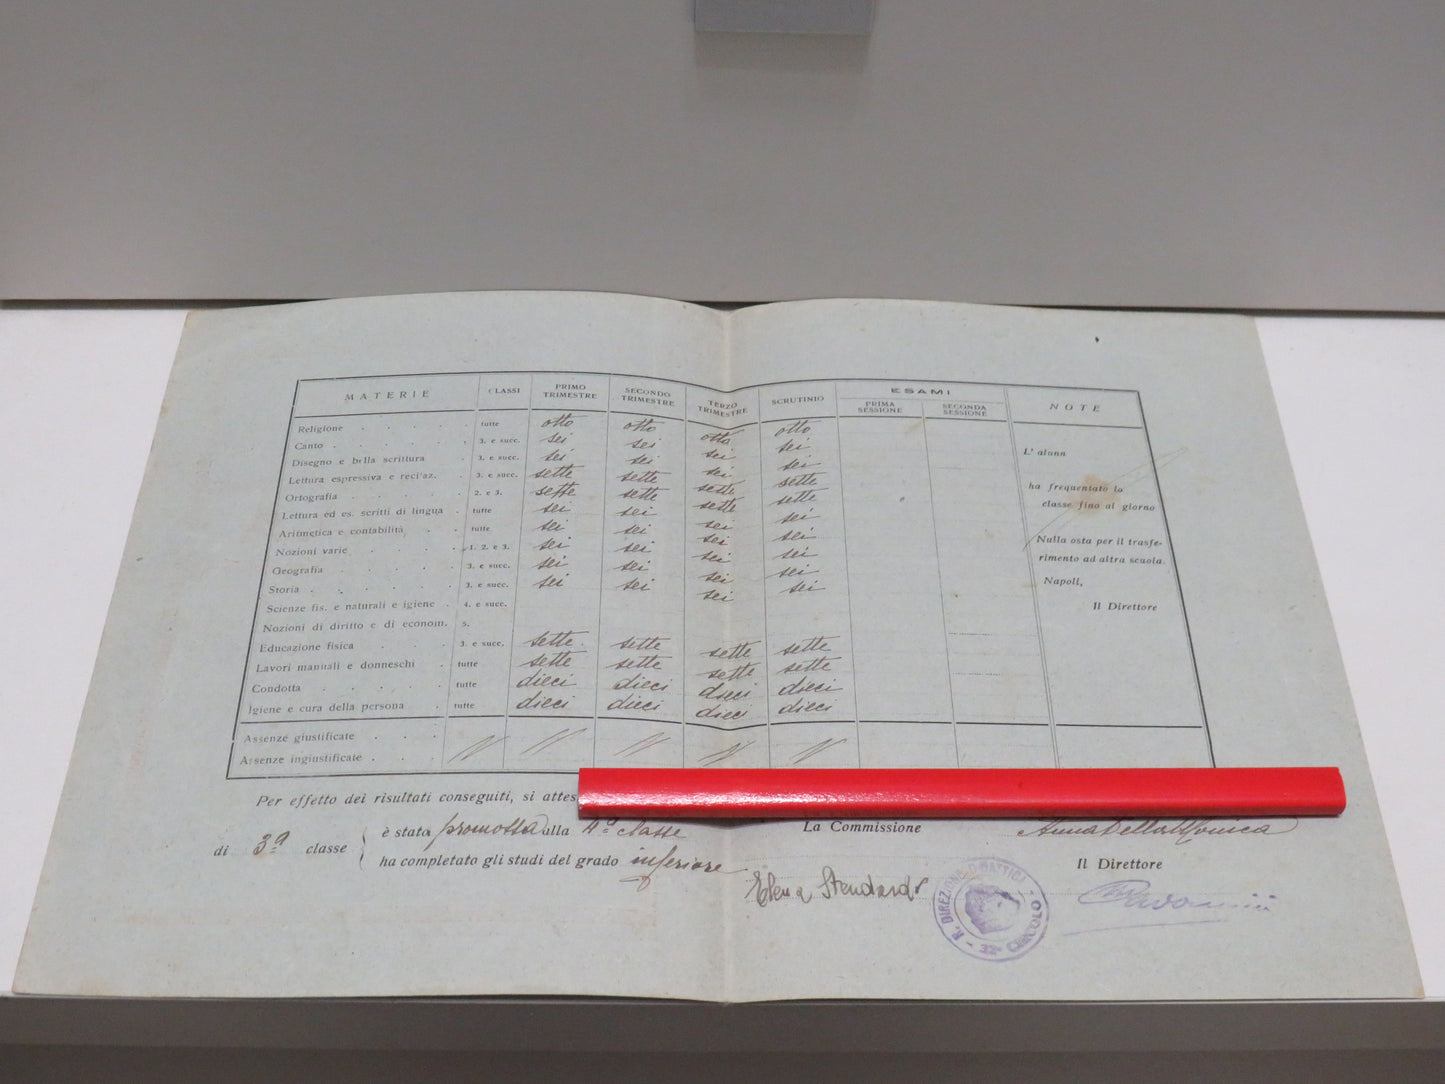 MATERIE CLASSI PRIMO TRIMESTRE SECONDO TRIMESTRE TERZO TRIMESTRE SCRUTINIO ESAMI PRIMA SESSIONE SECONDA SESSIONE NOTE
Religione tutte otto otto otto otto
Canto 3. e succ. sei sei sei sei
Disegno e bella scrittura 3. e succ. sei sei sei sei
Lettura espressiva e recitaz. 3. e succ. sette sette sette sette
Ortografia 2. e 3. sette sette sette sette
Lettura ed es. scritti di lingua tutte sei sei sei sei
Aritmetica e contabilità tutte sei sei sei sei
Nozioni varie 1. 2. e 3. sei sei sei sei
Geografia 3. e succ. sei sei sei sei
Storia 3. e succ. sei sei sei sei
Scienze fis. e naturali e igiene 4. e succ.
Nozioni di diritto e di econom. 5.
Educazione fisica 3. e succ. sette sette sette sette
Lavori manuali e donneschi tutte sette sette sette sette
Condotta tutte dieci dieci dieci dieci
Igiene e cura della persona tutte dieci dieci dieci dieci
Assenze giustificate
Assenze ingiustificate
L' alunn
ha frequentato la
classe fino al giorno
Nulla osta per il trasfe-
rimento ad altra scuola.
Napoli,
Il Direttore
Per effetto dei risultati conseguiti, si attes
di 3ª classe
è stata promossa alla 4ª classe
ha completato gli studi del grado inferiore
La Commissione
Anna Della Monica
Elena Stendardo
Il Direttore
R. DIREZIONE DIDATTICA
32° CIRCOLO